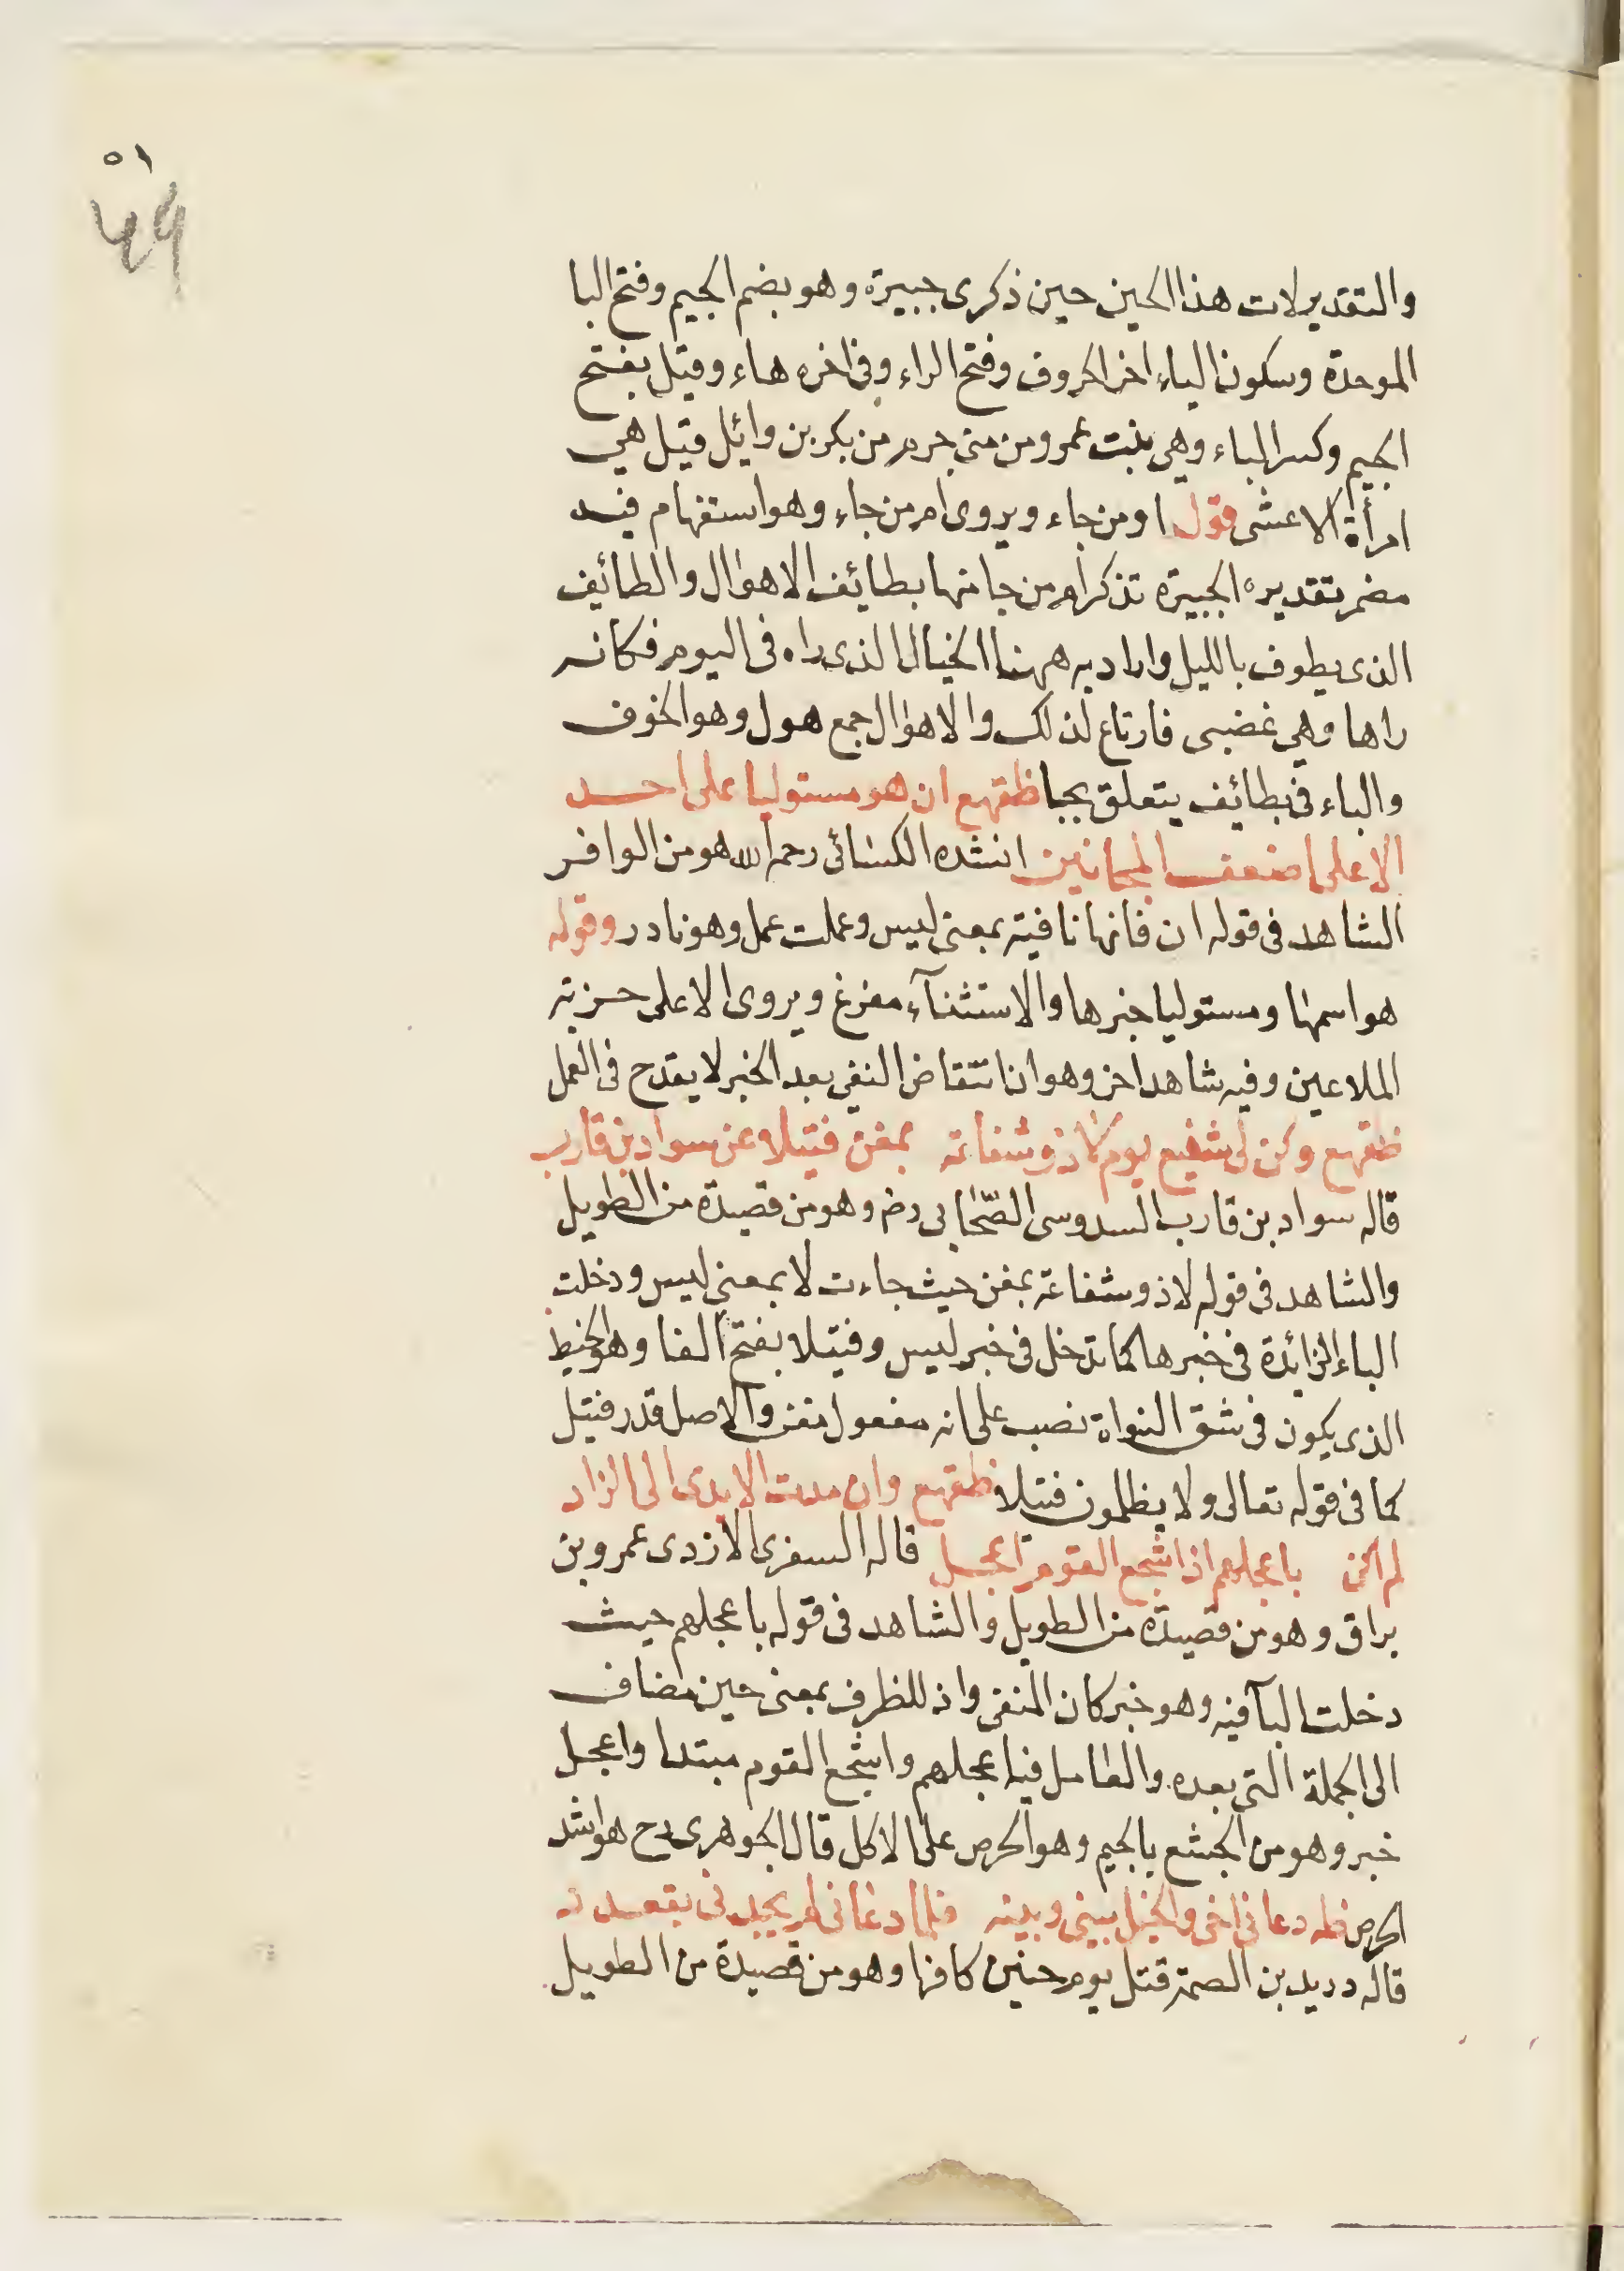 ٥١
٤٩
والتقدير لات هذا الحين حين ذكرى جبيرة وهو بضم الجيم وفتح البا
الموحدة وسكون الياء اخر الحروف وفتح الراء وفى اخره هاء وقيل بفتح
الجيم وكسر الباء وهي بنت عمرو من بكر بن وائل قيل هي
امرأة الاعشى قول او من جاء ويروى ام من جاء وهو استفهام فيه
مضمر تقديره الجبيرة تذكر ام من جا منها بطائف الاهوال والطائف
الذى يطوف بالليل واراد به ههنا الخيال الذى راه فى اليوم فكانه
راها وهي غضبى فارتاع لذلك والاهوال جمع هول وهو الخوف
والباء فى بطائف يتعلق بجا ظقهع ان هو مستوليا على احد
الا على اضعف المجانين انشده الكسائى رحمه الله هو من الوافر
الشاهد فى قوله ان فانها نافية بمعنى ليس وعملت عمل وهو نادر وقوله
هو اسمها ومستوليا خبرها والاستثنآء مفرغ ويروى الا على حزبه
الملاعين وفيه شاهد اخر وهو ان انتقاض النفى بعد الخبر لا يقدح فى العمل
ظقهع وكن لى شفيع يوم لا ذو شفاعة بمغن فتيلا عن سواد بن قارب
قاله سواد بن قارب السدوسى الصّحابى رضـ وهو من قصيدة من الطويل
والشاهد فى قوله لا ذو شفاعة بمغن حيث جاءت لا بمعنى ليس ودخلت
الباء الزائدة فى خبرها كما تدخل فى خبر ليس وفتيلا بفتح الفا وهو الخيط
الذى يكون فى شق النواة نصب على انه مفعول مغن والاصل قدر فتيل
كما فى قوله تعالى ولا يظلمون فتيلا ظقهع وان مدت الايدى الى الزاد
لم اكن باعجلهم اذ اشجع القوم اعجل قاله السنفرى الازدى عمرو بن
براق وهو من قصيدة من الطويل والشاهد فى قوله باعجلهم حيث
دخلت البآ فيه وهو خبر كان المنفى واذ للظرف بمعنى حين مضاف
الى الجملة التى بعده والعامل فيه اعجلهم واشجع القوم مبتدا واعجل
خبر وهو من الجشع بالجيم وهو الحرص على الاكل قال الجوهرى رح هو اشد
الحرص ظه دعانى اخى والخيل بينى وبينه فلما دعانى لم يجدنى بقعدد
قاله دريد بن الصمة قتل يوم حنين كافرا وهو من قصيدة من الطويل